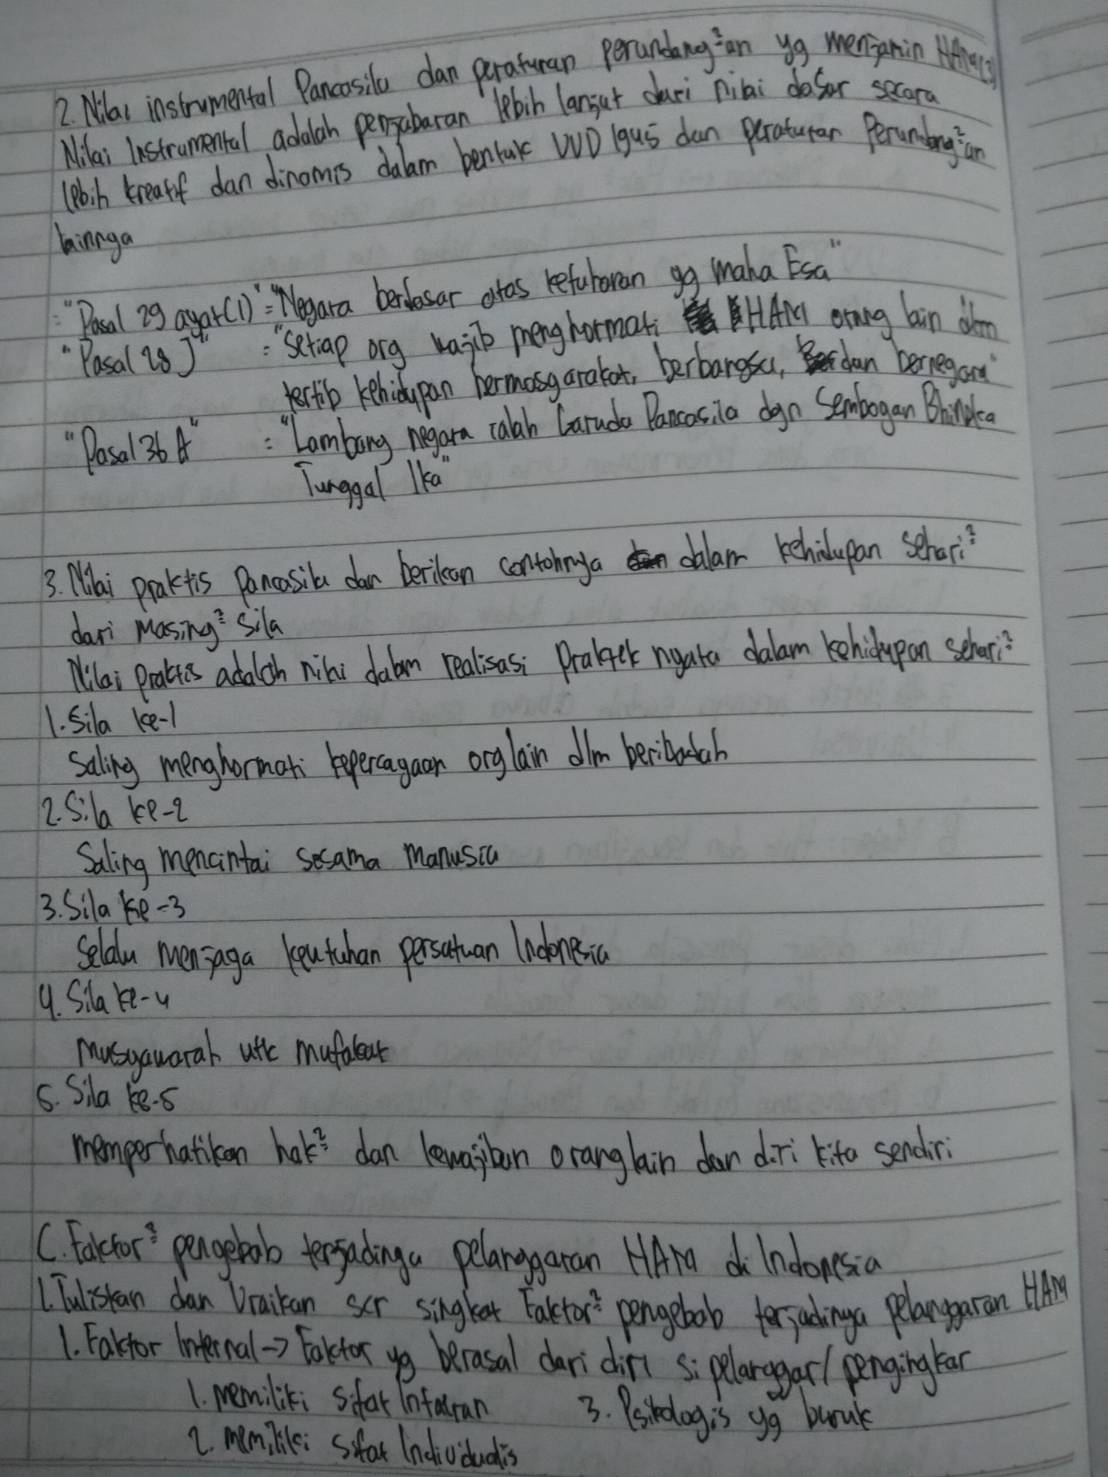 2. Nilai instrumental Pancasila dan peraturan perundang²an yg menjamin HAM (3)
Nilai Instrumental adalah penjabaran lebih lanjut dari nilai dasar secara
lebih kreatif dan dinamis dalam bentuk UUD 1945 dan peraturan Perundang²an
lainnya
: "Pasal 29 ayat (1)" = "Negara berdasar atas ketuhanan yg Maha Esa"
"Pasal 28 J" = "Setiap org wajib menghormati HAM orang lain dlm
tertib kehidupan bermasyarakat, berbangsa, dan bernegara"
"Pasal 36 A" = "Lambang negara ialah Garuda Pancasila dgn Semboyan Bhineka
Tunggal Ika"
3. Nilai praktis pancasila dan berikan contohnya dalam kehidupan sehari²
dari Masing² Sila
Nilai praktis adalah nilai dalam realisasi praktek nyata dalam kehidupan sehari²
1. Sila ke-1
Saling menghormati kepercayaan org lain dlm beribadah
2. Sila ke-2
Saling mencintai sesama manusia
3. Sila ke-3
Selalu menjaga keutuhan persatuan Indonesia
4. Sila ke-4
Musyawarah utk mufakat
5. Sila ke-5
memperhatikan hak² dan kewajiban orang lain dan diri kita sendiri
C. Faktor² pengebab terjadinya pelanggaran HAM di Indonesia
1. Tuliskan dan Uraikan scr singkat Faktor² pengebab terjadinya pelanggaran HAM
1. Faktor Internal -> Faktor yg berasal dari diri si pelanggar / pengingkar
1. memiliki sifat Intoleran 3. Psikologis yg buruk
2. memiliki sifat Individualis